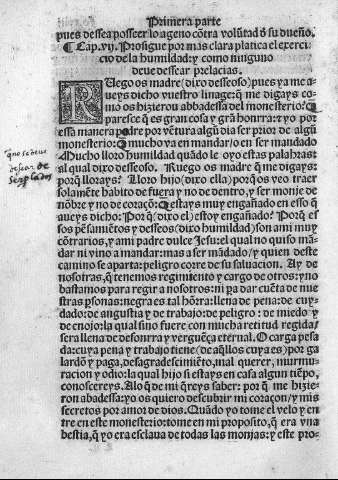 Primera parte
pues dessea posseer lo ageno cōtra volūtad ð su dueño.
¶ Cap. vij. Prosigue por mas clara platica el exerci
cio de la humildad: y como ninguno
deue dessear prelacias.
RUego os madre (dixo desseoso) pues ya me a-
ueys dicho vuestro linage: q̄ me digays co-
mo os hizierou abbadessa del monesterio?
paresce q̄ es gran cosa y grā honrra: z yo por
essa manera podre por vētura algū dia ser prior de algū
monesterio: mucho va en mandar/o en ser mandado
Mucho lloro humildad quādo le oyo estas palabras:
al qual dixo desseoso. Ruego os madre q̄ me digays:
porq̄ llorays? Lloro hijo (dixo ella) porq̄ os veo traer
solamēte habito de fuera y no de dentro, y ser monje de
nōbre y no de coraçō: Estays muy engañado en esso q̄
aueys dicho: Porq̄ (dixo el) estoy engañado? Porq̄ es
sos pēsamiētos y desseos (dixo humildad) son a mi muy
cōtrarios, y a mi padre dulce Jesu: el qual no quiso mā
dar ni vino a mandar: mas a ser mādado/ y quien deste
camino se aparta: peligro corre de su saluacion. Ay de
nosotras, q̄ tenemos regimiento y cargo de otros: y no
bastamos para regir a nosotros: ni pa dar cuēta de nue
stras psonas: negra es tal hōrra: llena de pena: de cuy-
dado: de angustia y de trabajo: de peligro: de miedo y
de enojo: la qual sino fuere con mucha retitud regida/
sera llena de desonrra y verguēça eternal. O carga pesa
da: cuya pena y trabajo tiene (de aq̄llos cuya es) por ga
lardō y paga, desagradescimiēto, mal querer, murmu-
racion y odio: la qual hijo si estays en casa algun tiēpo,
conoscereys. Alo q̄ de mi q̄reys saber: por q̄ me hizie-
ron abadessa: yo os quiero descubrir mi coraçon/y mis
secretos por amor de dios. Quādo yo tome el velo y en
tre en este monesterio: tome en mi proposito, q̄ era vna
bestia, q̄ yo era esclaua de todas las monjas: y este pro-